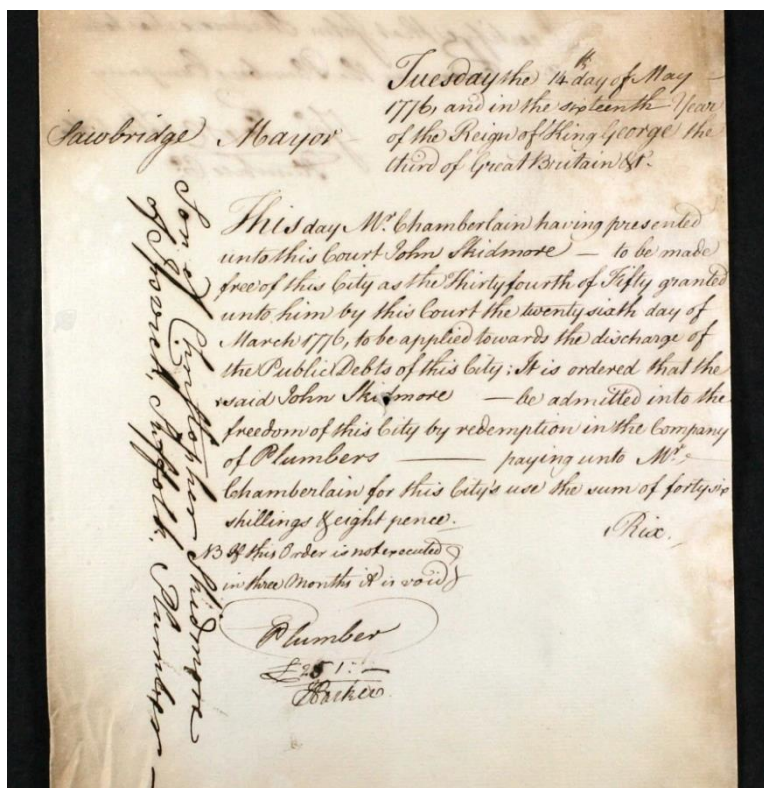 Tuesday the 14th day of May
1776, and in the sixteenth Year
Sawbridge Mayor of the Reign of King George the
third of Great Britain &c.
This day Mr. Chamberlain having presented
unto this Court John Skidmore — to be made
free of this City as the Thirty fourth of Fifty granted
unto him by this Court the twenty sixth day of
March 1776, to be applied towards the discharge of
the Public Debts of this City: It is ordered that the
said John Skidmore — be admitted into the
freedom of this City by redemption in the Company
of Plumbers — paying unto Mr.
Chamberlain for this City's use the sum of forty six
shillings & eight pence.
Rix.
NB If this Order is not executed
in three Months it is void
Plumber
£25 1: —
Son of Christopher Skidmore
of Suffolk, Plumber —